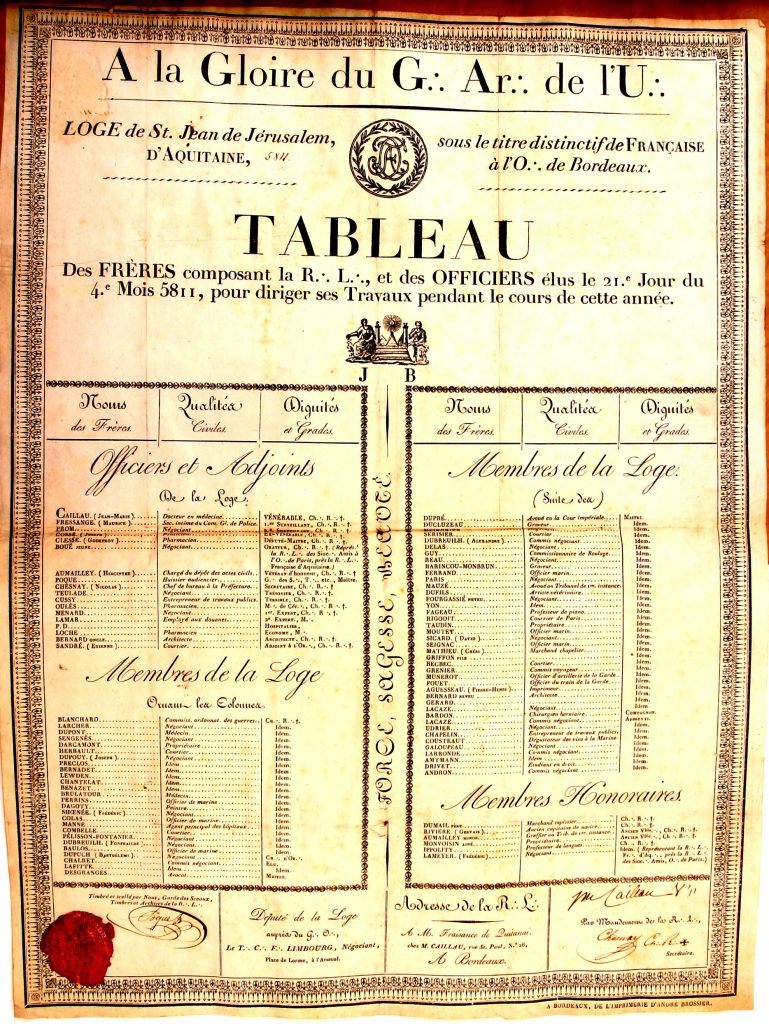 A la Gloire du G.·. Ar.·. de l'U.·.
LOGE de St. Jean de Jérusalem,
D'AQUITAINE, 5811
sous le titre distinctif de FRANÇAISE
à l'O.·. de Bordeaux.
TABLEAU
Des FRÈRES composant la R.·. L.·., et des OFFICIERS élus le 21.e Jour du
4.e Mois 5811, pour diriger ses Travaux pendant le cours de cette année.
J B
FORCE, SAGESSE, BEAUTÉ
Noms des Frères. Qualités Civiles. Dignités et Grades.
Officiers et Adjoints
De la Loge.
CAILLAU. (JEAN-MARIE) Docteur en médecine VÉNÉRABLE, Ch.·. R.·. †.
FRESSANGE. (MAURICE) Sec. intime du Com. Gl. de Police. 1.er SURVEILLANT, Ch.·. R.·. †.
PROM Négociant
Pharmacien EX-VÉNÉRABLE, Ch.·. R.·. †.
CLESSE (GODEFROY) Pharmacien DÉPUTÉ-MAÎTRE, Ch.·. R.·. †.
BOUÉ JEUNE Négociant ORATEUR, Ch.·. R.·. †. (Représ.t
la R.·. L.·. des Sinc.·. Amis à
l'O.·. de Paris, près la R.·. L.·.
Française d'Aquitaine.)
AUMAILLEY (HIACINTHE) Chargé du dépôt des actes civils. VÉNÉRAB. d'honneur, Ch.·. R.·. †.
POQUE Huissier audiencier G.·. des S.·., T.·., etc., Maître.
CHESNAY (NICOLAS) Chef de bureau à la Préfecture. SECRÉTAIRE, Ch.·. R.·. †.
TEULADE Négociant TRÉSORIER, Ch.·. R.·. †.
CUSSY Entrepreneur de travaux publics. TERRIBLE, Ch.·. R.·. †.
OULÈS Pharmacien M.·. de Cér.·., Ch.·. R.·. †.
MENARD Négociant 1.er EXPERT, Ch.·. R.·. †.
LAMAR Employé aux douanes 2.e EXPERT, M.·.
P. D. HOSPITALIER,
LOCHE Pharmacien ECONOME, M.·.
BERNARD ONCLE Architecte ARCHITECTE, Ch.·. R.·. †.
SANDRÉ. (ETIENNE) Courtier ADJOINT À L'OR.·., Ch.·. R.·. †.
Membres de la Loge
Ornant les Colonnes.
BLANCHARD Commiss. ordonnat. des guerres. CH.·. R.·. †.
LARCHER Négociant Idem.
DUPONT Médecin Idem.
SENGENÈS Négociant Idem.
DARCAMONT Propriétaire Idem.
HERBAULT Courtier Idem.
DUPOUY. (JOSEPH) Négociant Idem.
PRECLOS Idem Idem.
BERNADET Idem Idem.
LEWDEN Idem Idem.
CHANTELAT Idem Idem.
BENAZET Idem Idem.
BRULATOUR Idem Idem.
PERRINS Officier de marine Idem.
DAGOTY Peintre Idem.
Négociant Idem.
COLAS Officier de marine Idem.
MANNE Agent principal des hôpitaux Idem.
COMBELLE Courtier Idem.
PÉLISSON-FONTANIER Négociant Idem.
DUBREUILH. Idem Idem.
BAULOS Officier de marine Idem.
DUPUCH (BARTHÉLEMI) Négociant CH.·. d'OR.·.
CHALRET Commis négociant
LAFITTE Idem Idem.
DESGRANGES Avocat MAÎTRE.
Noms des Frères. Qualités Civiles. Dignités et Grades.
Membres de la Loge.
(Suite des)
DUPRÉ Avoué en la Cour impériale MAÎTRE.
DUCLUZEAU Graveur Idem.
Idem.
SERISIER Courtier Idem.
DUBREUILH (ALEXANDRE) Commis négociant Idem.
DELAS Négociant Idem.
GUY Commissionnaire de Roulage Idem.
RÉAU Négociant Idem.
BARINCOU-MONBRUN Graveur Idem.
FERRAND Officier marin Idem.
PARIS Négociant Idem.
MAUZÉ Avoué au Tribunal de 1re. instance Idem.
DUFILS Artiste vétérinaire Idem.
FOURGASSIÉ NEVEU Négociant Idem.
YON Idem Idem.
FAGEAU Professeur de piano Idem.
RIGODIT Courrier de Paris Idem.
TAUDIN Propriétaire Idem.
MOUTET Officier marin Idem.
SICARD. (DAVID) Négociant Idem.
SEIGNAC Officier marin Idem.
MATHIEU (CHÉRI) Marchand chapelier Idem.
GRIFFON FILS
BECBEC Courtier Idem.
GRENIER Commis voyageur Idem.
MUNEROT Officier d'artillerie de la Garde Idem.
POUET Officier du train de la Garde Idem.
AGUESSEAU. (PIERRE-HENRI) Imprimeur Idem.
BERNARD NEVEU Architecte Idem.
GERARD Idem.
LACAZE Négociant Idem.
BARDON Chirurgien herniaire COMPAGNON.
LACAZE Commis négociant APPRENTI.
UDRIER Négociant Idem.
CHAPELIN Entrepreneur de travaux publics Idem.
COUSTEAUT Dégustateur des vins à la Marine Idem.
GALOUPEAU Négociant Idem.
LARRONDE Commis négociant Idem.
AMTMANN Idem Idem.
DRIVET Etudiant en droit Idem.
ANDRON Commis négociant Idem.
Membres Honoraires.
DUMAIL PÈRE Marchand tapissier Ch.·. R.·. †.
RIVIÈRE (GERVAIS) Ancien capitaine de navire ANCIEN VÉN.·., Ch.·. R.·. †.
AUMAILLEY Greffier au Trib. de 1re. instance ANCIEN VÉN.·., Ch.·. R.·. †.
MONVOISIN AÎNÉ Propriétaire Ch.·. R.·. †.
IPPOLITY Professeur de langues Idem. (Représentant la R.·. L.·.
LAMEYER (FRÉDÉRIC) Négociant Fr.·. d'Aq.·., près la R.·. L.·.
des Sinc.·. Amis, O.·. de Paris.)
Timbré et scellé par Nous, Garde des Sceaux,
Timbres et Archives de la R.·. L.·.
Poque
Député de la Loge
auprès du G.·. O.·.
Le T.·. C.·. F.·. LIMBOURG, Négociant,
Place de Lorme, à l'Arsenal.
Adresse de la R.·. L.·.
A M. Fraisance de Quitanai.
chez M. CAILLAU, rue St. Paul, N.º 26,
A Bordeaux.
Caillau V.·.
Par Mandement de la R.·. L.·.,
Chesnay Ch. R. †
Secrétaire.
A BORDEAUX, DE L'IMPRIMERIE D'ANDRÉ BROSSIER.